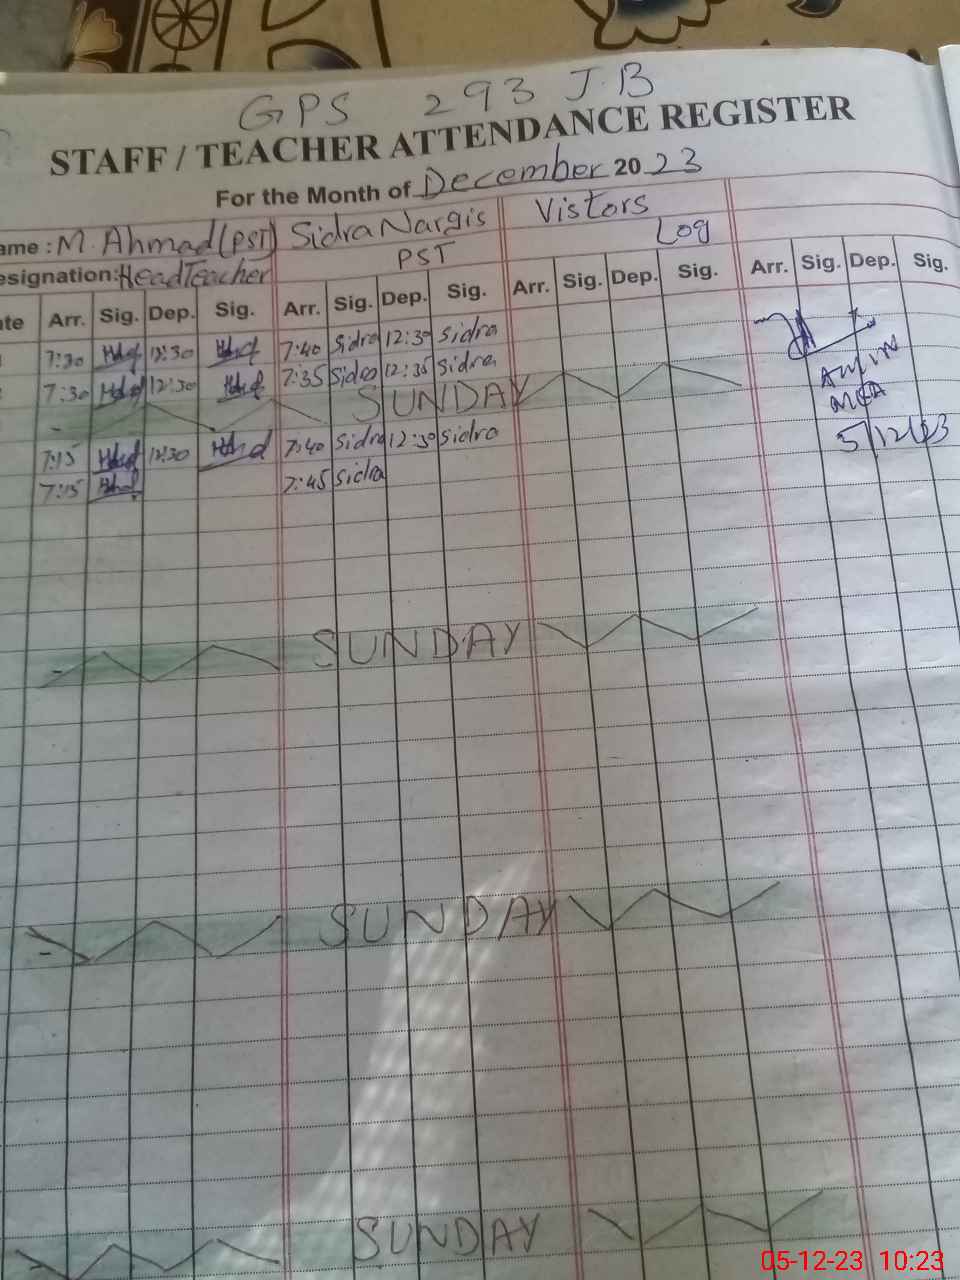 GPS 293 J.B
STAFF / TEACHER ATTENDANCE REGISTER
For the Month of December 2023
ame : M. Ahmad (PST) Sidra Nargis Vistors
esignation: Head Teacher PST Log
te Arr. Sig. Dep. Sig. Arr. Sig. Dep. Sig. Arr. Sig. Dep. Sig. Arr. Sig. Dep. Sig.
7:30 12:30 7:40 Sidra 12:30 Sidra
7:30 12:30 7:35 Sidra 12:35 Sidra
SUNDAY
7:15 12:30 7:40 Sidra 12:30 Sidra
7:15 7:45 Sidra
5/12/23
SUNDAY
SUNDAY
SUNDAY
05-12-23 10:23